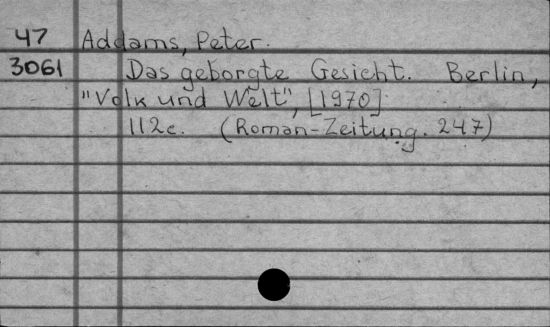 47 Addams, Peter.
3061 Das geborgte Gesicht. Berlin,
"Volk und Welt", [1970]
112c. (Roman-Zeitung. 247)